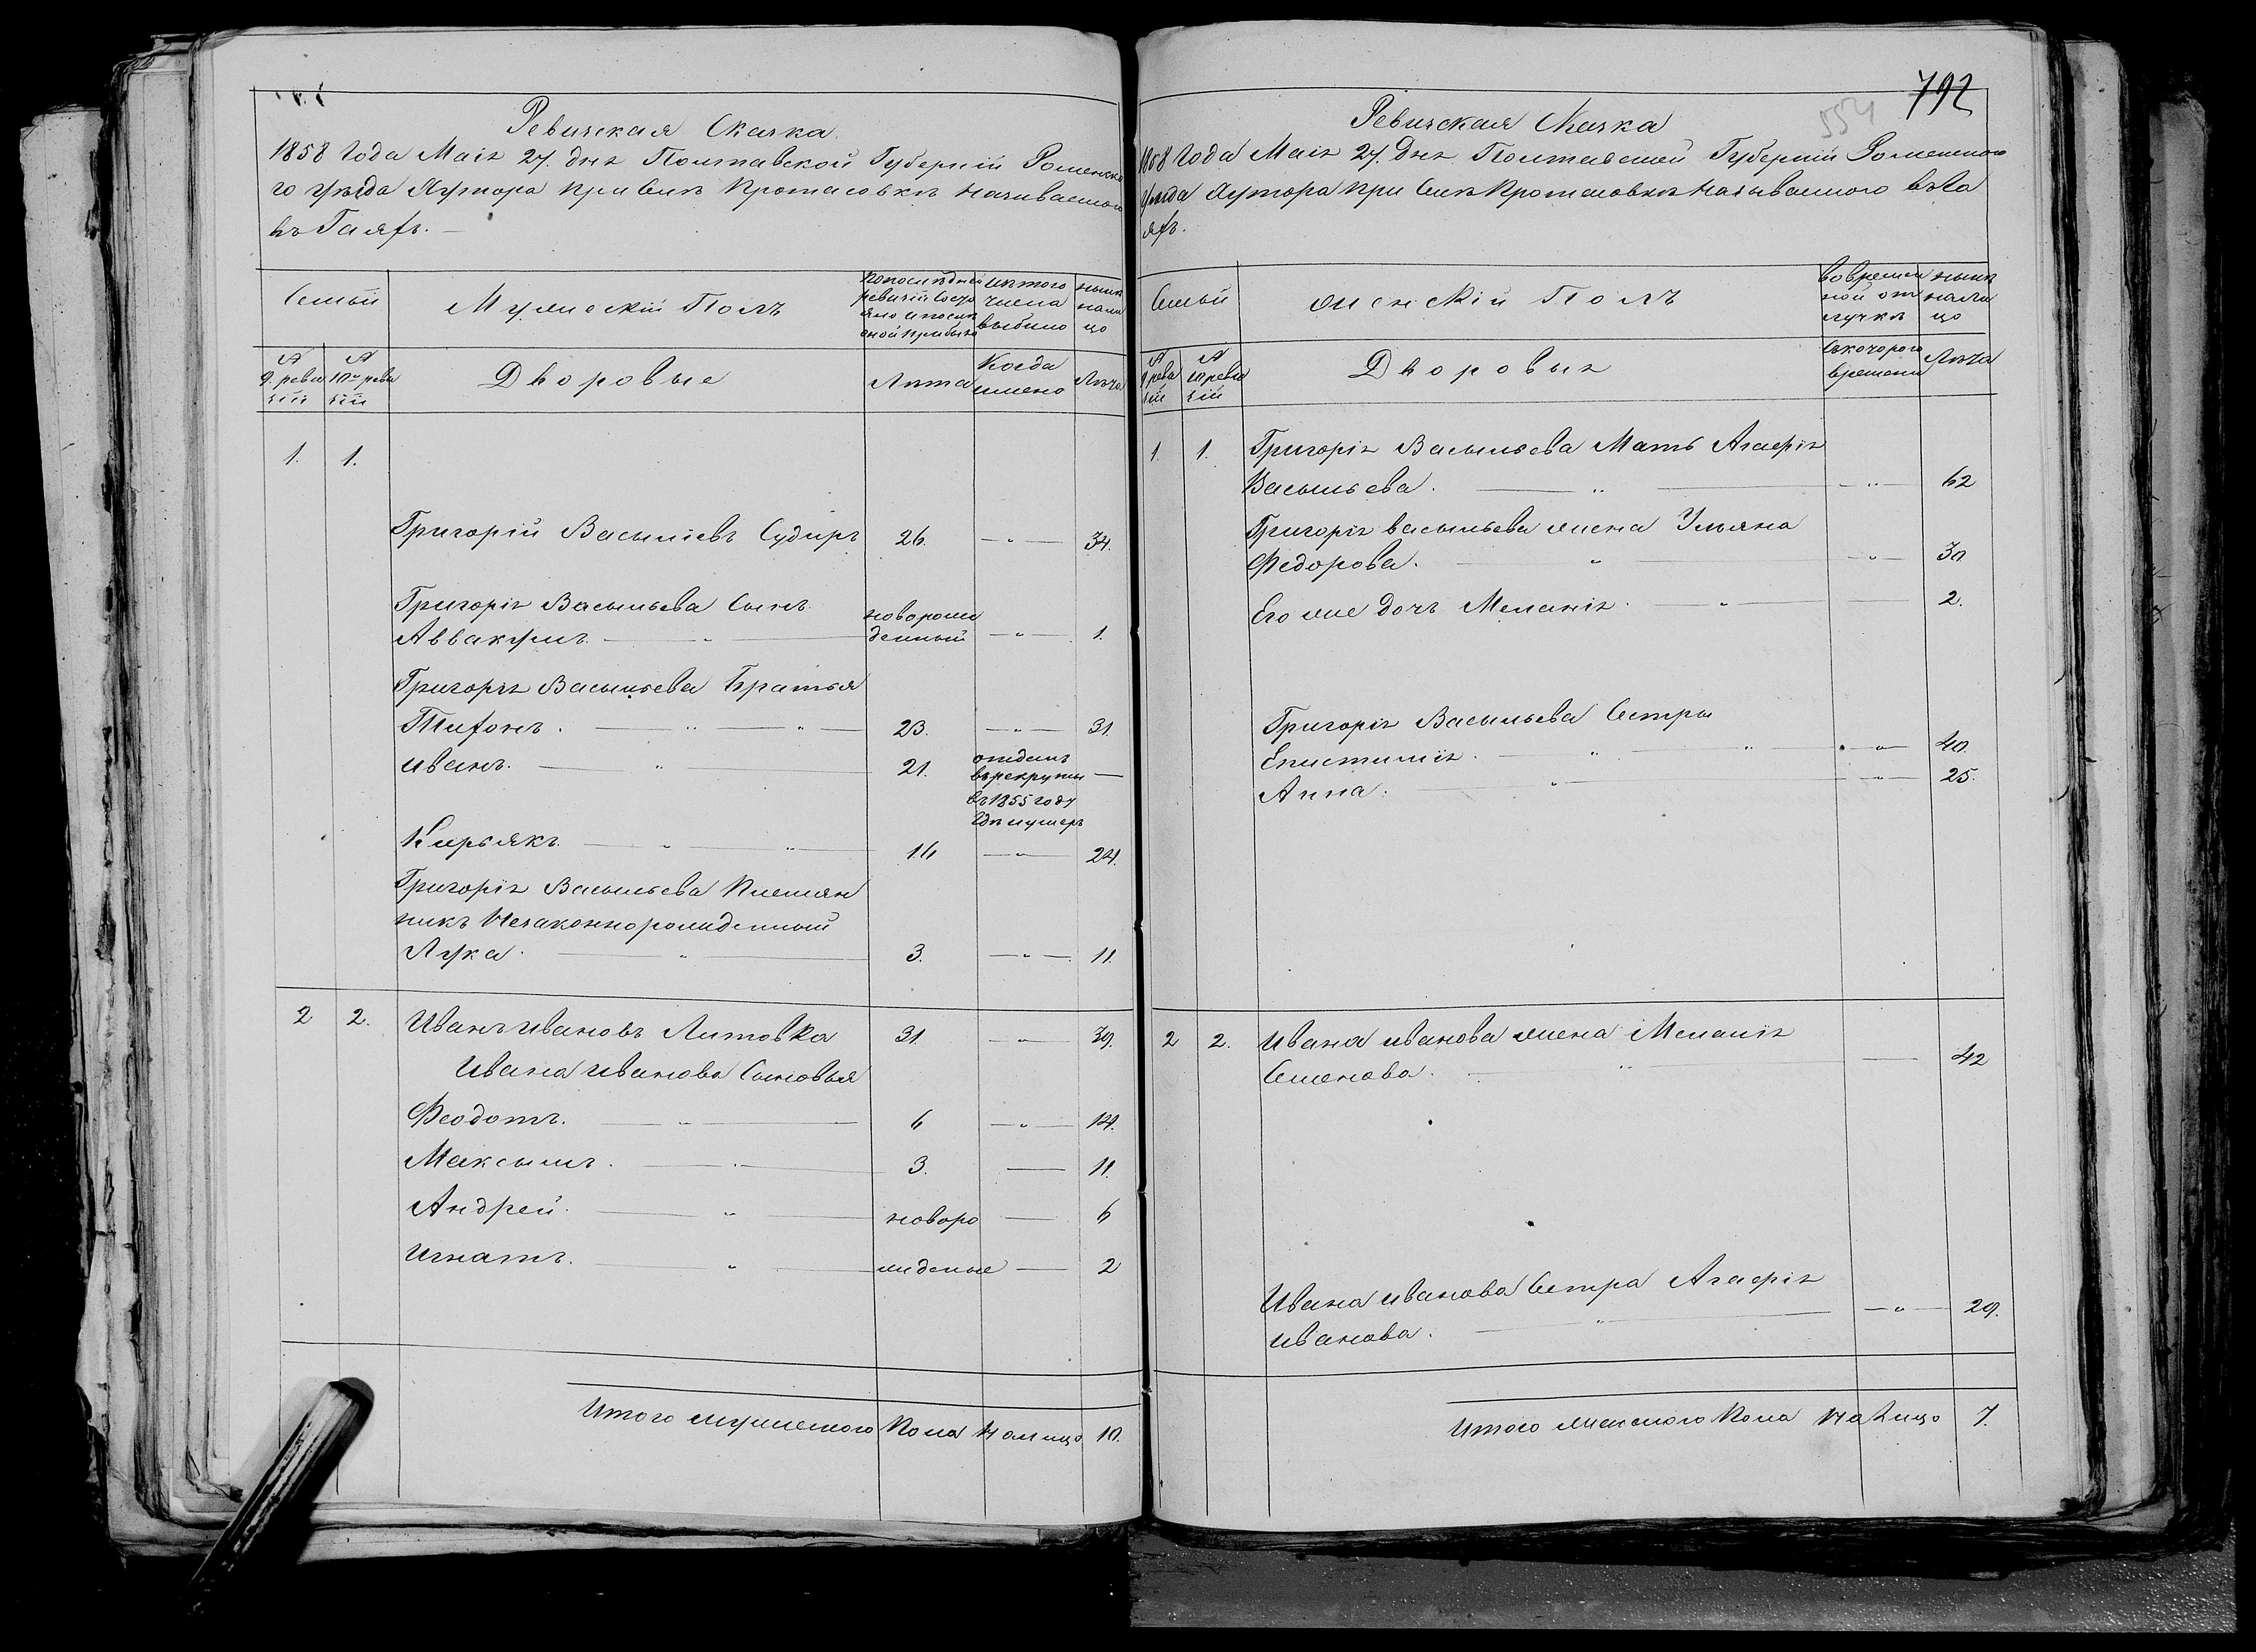 Ревизская Сказка
1858 Года Маія 27. дня Полтавской Губерніи Роменска
го Уѣзда Хутора при Селѣ Протасовкѣ называемого
въ Гаяхъ.
Семьи
Мужескій Полъ
По последней
ревизіи состо
яло и после
оной прибыло
Изъ того
числа
выбыло
Нынѣ
нали
цо
№
9. реви
зіи
№
10й реви
зіи
Дворовые
Лѣта
Когда
имено
Лѣта
1. 1.
Григорій Васильевъ Судиръ 26. 34.
Григорія Васильева Сынъ
Аввакумъ новорож
денный 1.
Григорія Васильева Братья
Тихонъ. 23. 31.
Иванъ. 21. отданъ
въ рекруты
въ 1855 году
Где и умеръ
Кирьякъ 16 24.
Григорія Васильева Племян
никъ Незаконнорожденный
Лука. 3. 11.
2 2. Иванъ Ивановъ Литовка 31. 39.
Ивана Иванова Сыновья
Феодотъ. 6 14.
Максымъ. 3. 11.
Андрей. новоро 6
Игнатъ. жденые 2
Итого мужеского Пола Налицо 10.
792
554
Ревизская Сказка
1858 Года Маія 27. Дня Полтавской Губерніи Роменского
Уѣзда Хутора при Селѣ Протасовкѣ Называемого въ Га
яхъ.
Семьи
Женскій Полъ
Во времен
ной от
лучкѣ
Нынѣ
нали
цо
№
9 реви
зіи
№
10 реви
зіи
Дворовыя
Съ которого
времени
Лѣта
1. 1. Григорія Васильева Мать Агафія
Васильева. 62
Григорія Васильева жена Ульяна
Федорова. 30
Его же дочь Меланія. 2.
Григорія Васильева Сестры
Епистимія. 40.
Анна. 25.
2 2. Ивана Иванова жена Меланія
Семенова. 42
Ивана Иванова Сестра Агафія
Иванова. 29.
Итого женского Пола На Лицо 7.